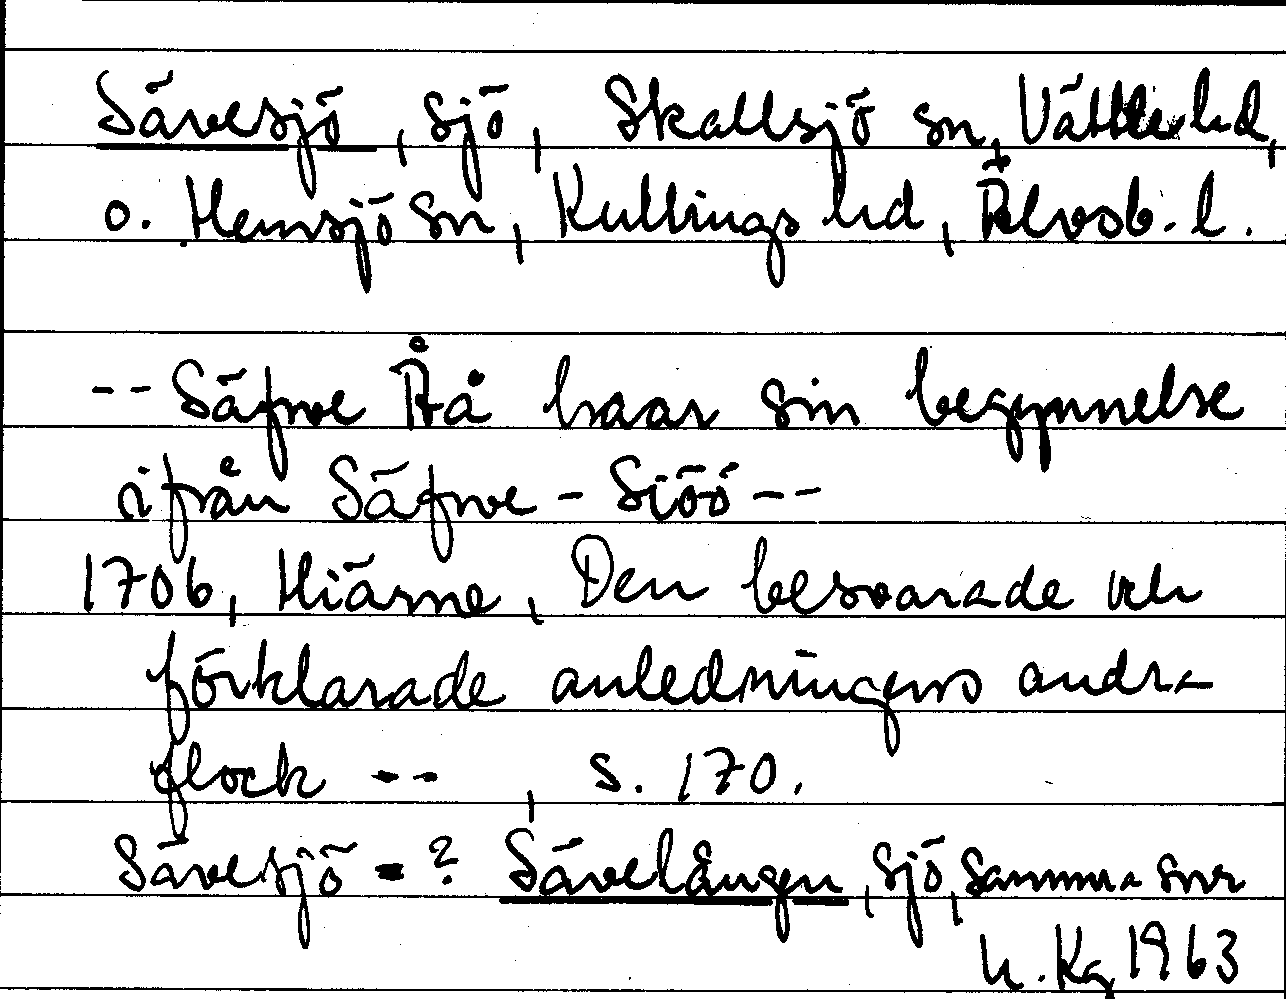 Sävesjö, sjö, Skallsjö sn, Vättle hd,
o. Hemsjö sn, Kullings hd, Älvsb. l.
-- Säfwe Åå haar sin begynnelse
ifrån Säfwe - Siöö --
1706, Hiärne, Den besvarade och
förklarade anledningens andra
flock -- , s. 170.
Sävesjö = ? Sävelången, sjö, samma snr
1963